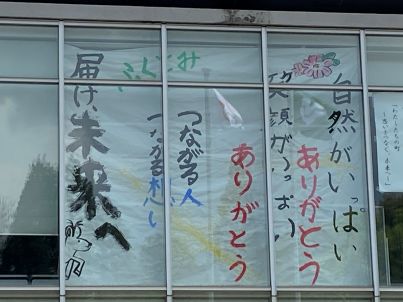 自然がいっぱい
ありがとう
笑顔がいっぱい
ありがとう
つながる人
つながる想い
ふくとみ
届け、未来へ
「わたしたちの町